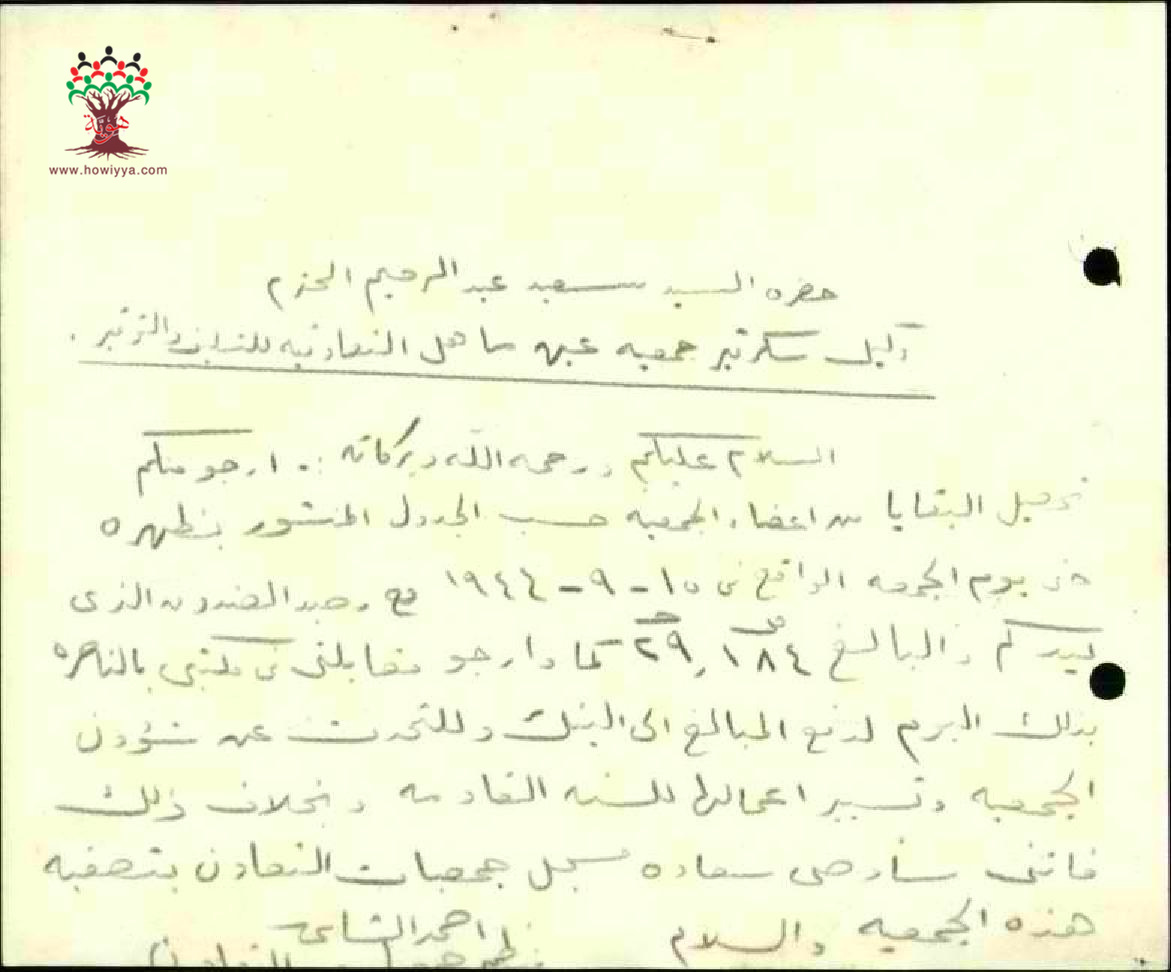 هوية
www.howiyya.com
حضره السيد سعيد عبد الرحيم المحترم
وكيل سكرتير جمعيه عين ماهل التعاونيه للتسليف والتوفير .
السلام عليكم ورحمه الله وبركاته . ارجو منكم
تحصيل البقايا من اعضاء الجمعيه حسب الجدول المنشور بظهره
حتى يوم الجمعه الواقع في ١٥ - ٩ - ١٩٤٤ مع رصيد الصندوق الذي
بيدكم والبالغ ٢٩,١٨٤ كما وارجو مقابلتي في مكتبي بالناصره
بذلك اليوم لدفع المبالغ الى البنك وللتحدث عن شؤون
الجمعيه وتسيير اعمالها للسنه القادمه وبخلاف ذلك
فانني سأوصي سعاده مسجل جمعيات التعاون بتصفيه
هذه الجمعيه والسلام
احمد
التعاون